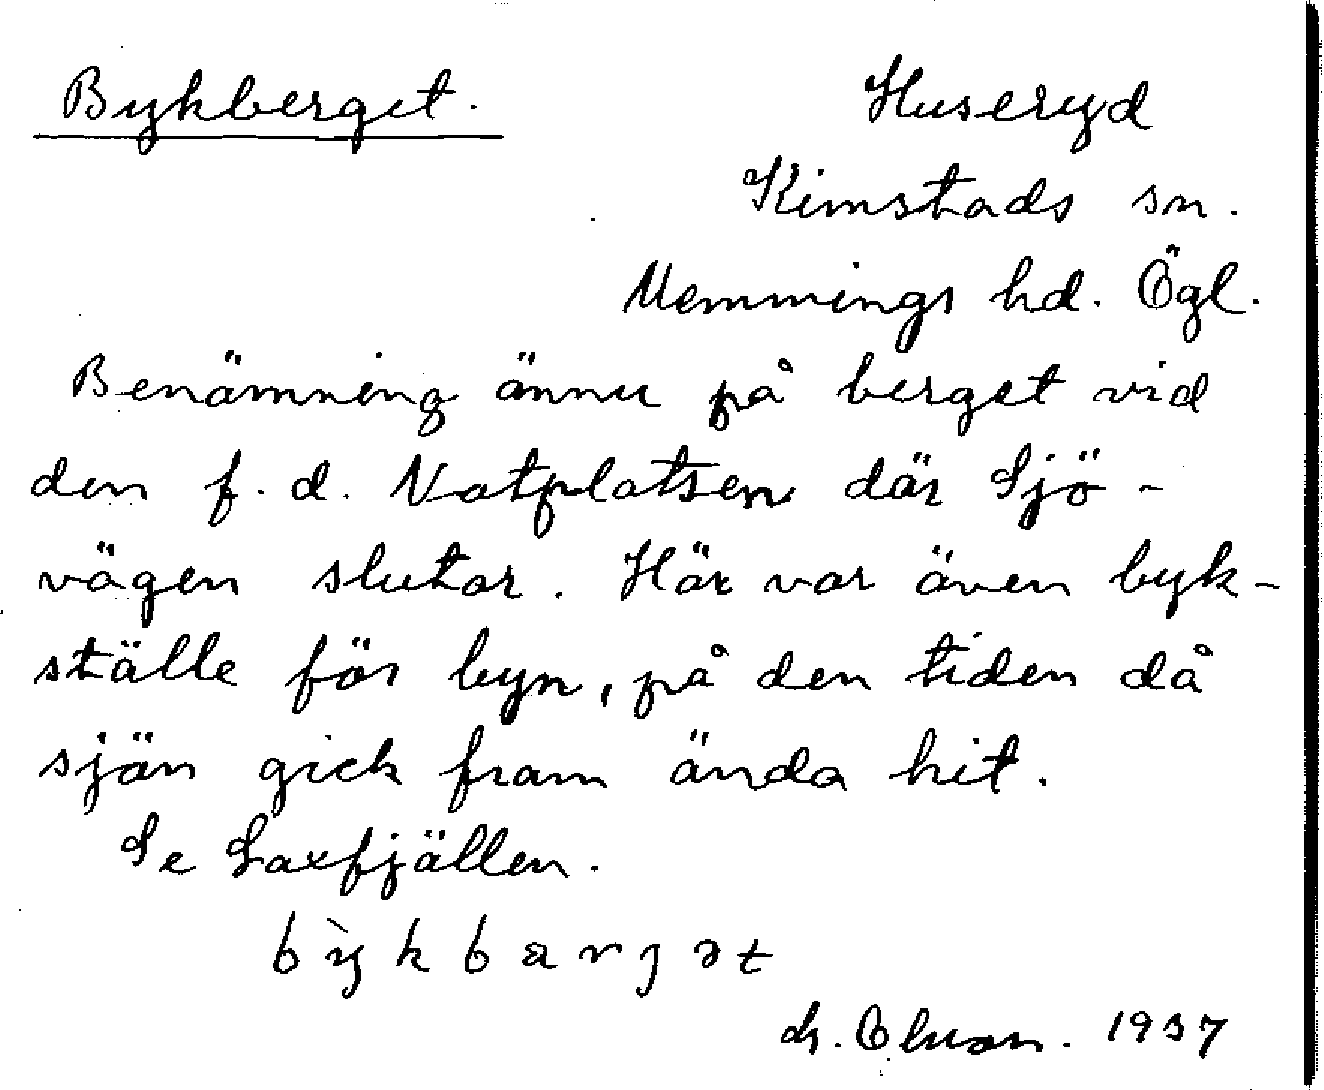 Bykberget.
Huseryd
Kimstads sn.
Memmings hd. Ögl.
Benämning ännu på berget vid
den f.d. Notplatsen där Sjö-
vägen slutar. Här var även byk-
ställe för byn, på den tiden då
sjön gick fram ända hit.
Se Laxfjällen.
bỳkbarjət
1937